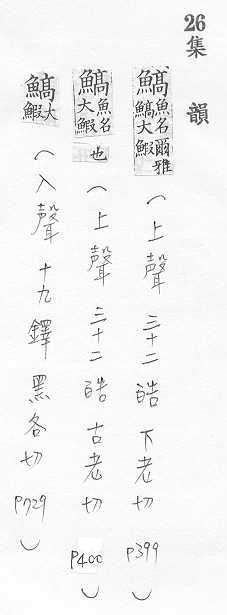 26集韻
鰝魚名爾雅鰝大鰕(上聲 三十二皓 下老切 P399)
鰝魚名大鰕也(上聲 三十二皓 古老切 P400)
鰝大鰕(入聲 十九鐸 黑各切 P729)